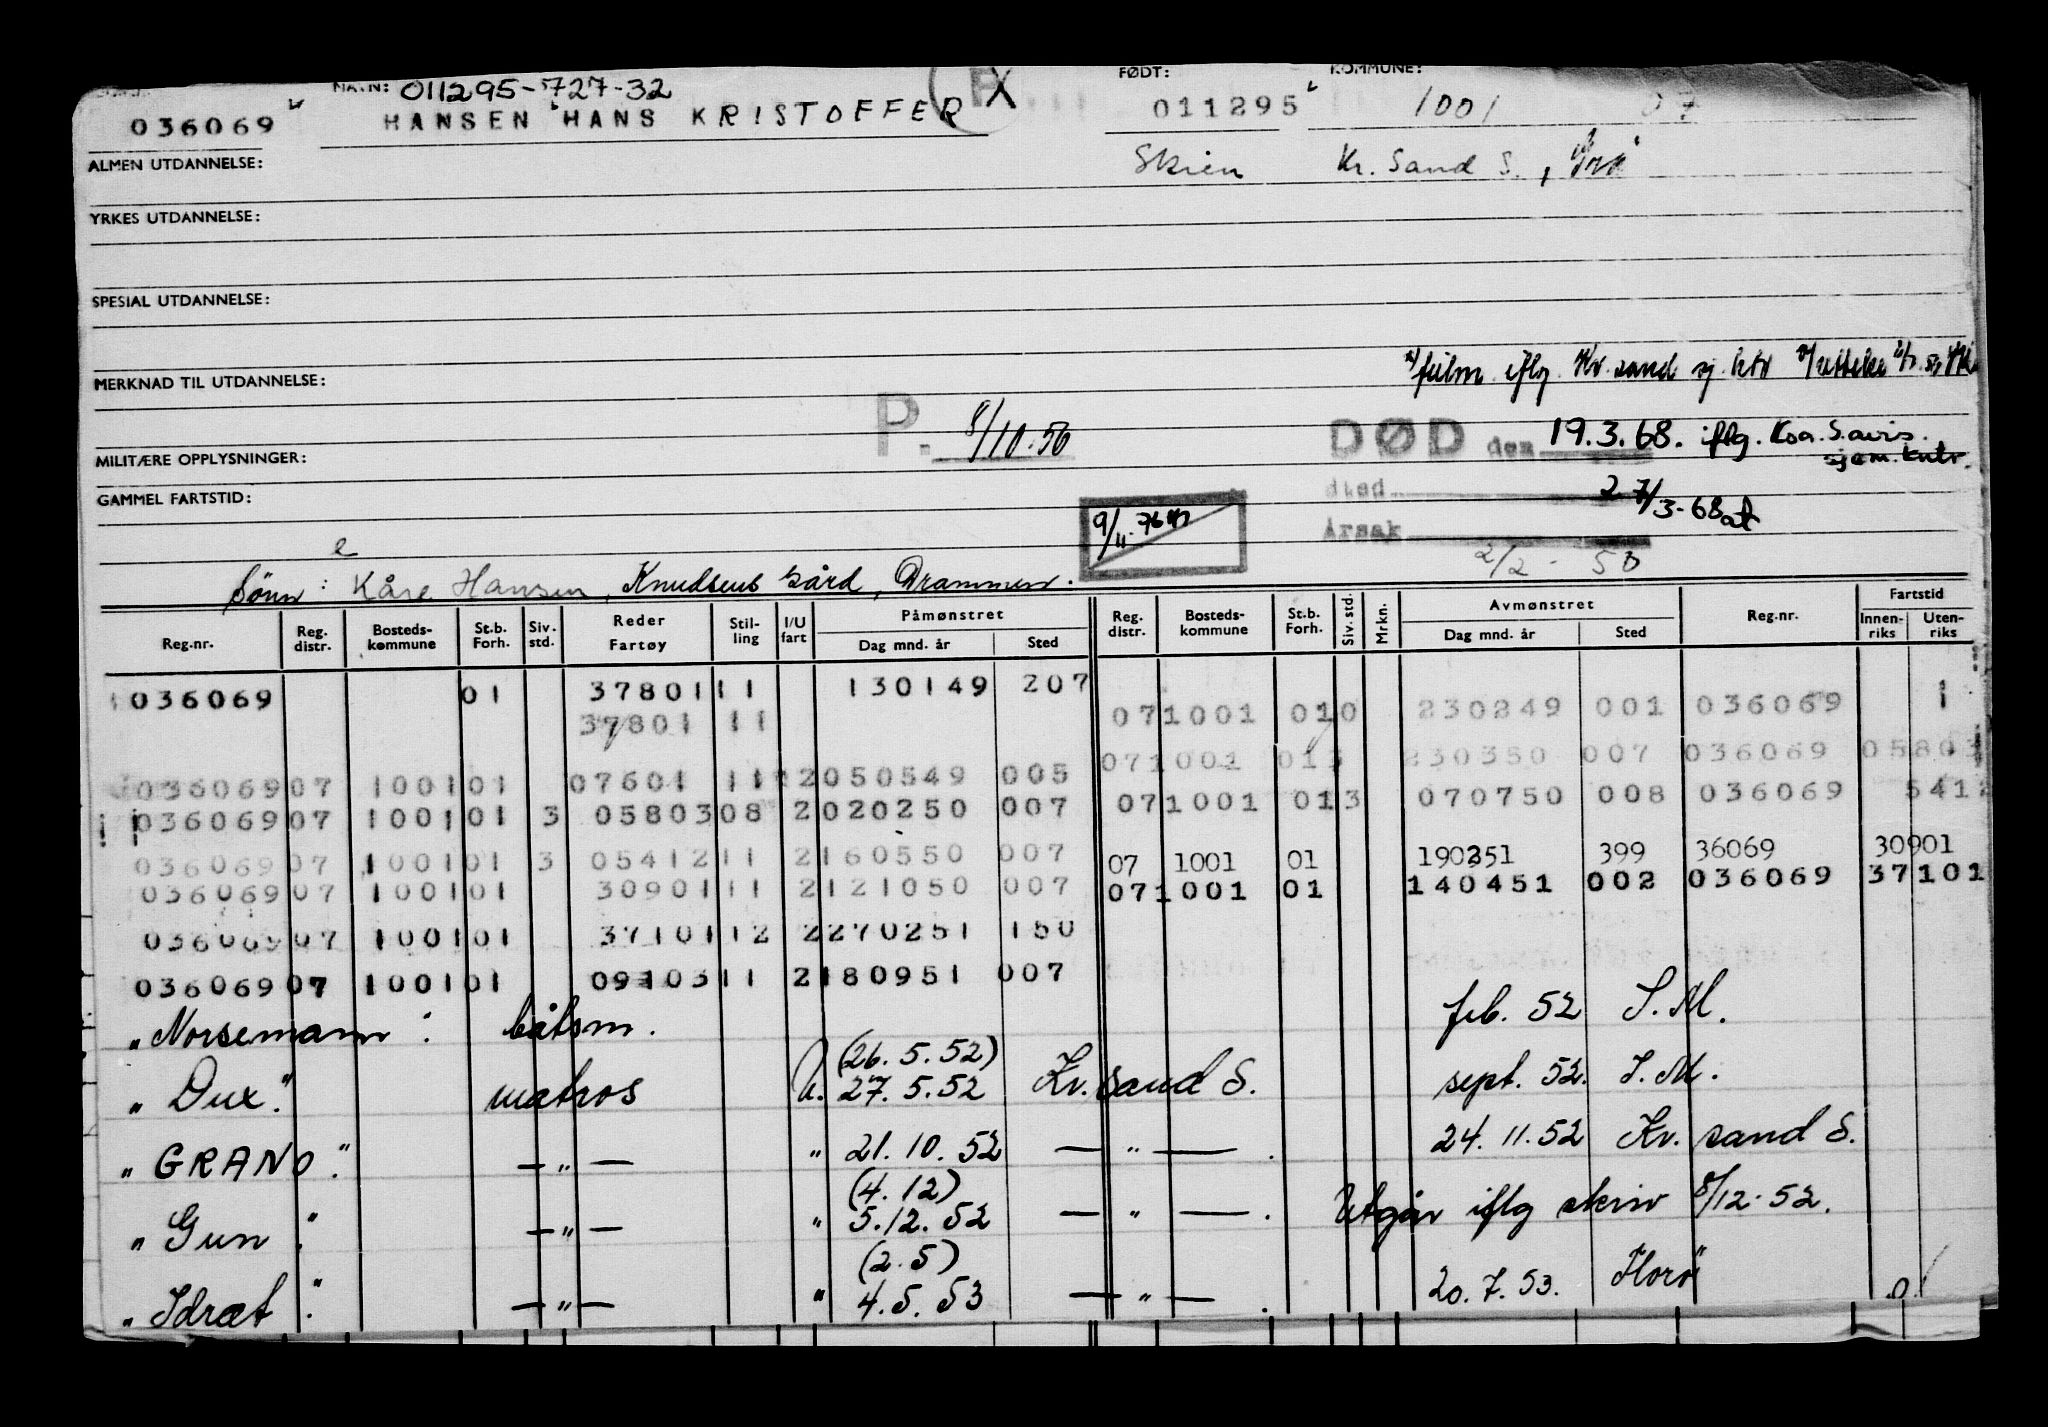 NAVN: 011295-727-32 FØDT: KOMMUNE:
036069 HANSEN HANS KRISTOFFER 011295 1001 07
ALMEN UTDANNELSE: Skien Kr. Sand S.,
YRKES UTDANNELSE:
SPESIAL UTDANNELSE:
MERKNAD TIL UTDANNELSE: iflg. Kr. sand sj. ktr
P. 8/10.56 DØD den 19.3.68. iflg. Koa. S. avis.
MILITÆRE OPPLYSNINGER: sjøm. kntr.
GAMMEL FARTSTID: sted 27/3-68
9/11. 76 Årsak
2/2 - 50
e
Sønn: Kåre Hansen, Knudsens Gård, Drammen.
Reg.nr. Reg. distr. Bosteds-kommune St.b. Forh. Siv. std. Reder Fartøy Stil-ling I/U fart Påmønstret Dag mnd. år Sted Reg. distr. Bosteds-kommune St.b. Forh. Siv. std. Mrkn. Avmønstret Dag mnd. år Sted Reg.nr. Fartstid Innen-riks Uten-riks
036069 01 37801 11 130149 207
37801 11 07 1001 01 0 230249 001 036069 1
07 1001 01 3 230350 007 036069 05803
036069 07 1001 01 07601 11 2 050549 005
036069 07 1001 01 3 05803 08 2 020250 007 07 1001 01 3 070750 008 036069 5412
036069 07 1001 01 3 05412 11 2 160550 007 07 1001 01 190251 399 36069 30901
036069 07 1001 01 30901 11 2 121050 007 07 1001 01 140451 002 036069 37101
036069 07 1001 01 37101 12 2 270251 150
036069 07 1001 01 09103 11 2 180951 007
"Norsemann": båtsm. feb. 52 S.M.
(26.5.52)
"Dux" matros U. 27.5.52 Kr. sand S. sept. 52. S.M.
"GRANO" — " — " 21.10.52 — " — . 24.11.52 Kr. sand S.
(4.12)
"Gun" — " — " 5.12.52 — " — . Utgår iflg skriv 8/12.52.
(2.5)
"Idræt" — " — " 4.5.53 — " — . 20.7.53. Horø